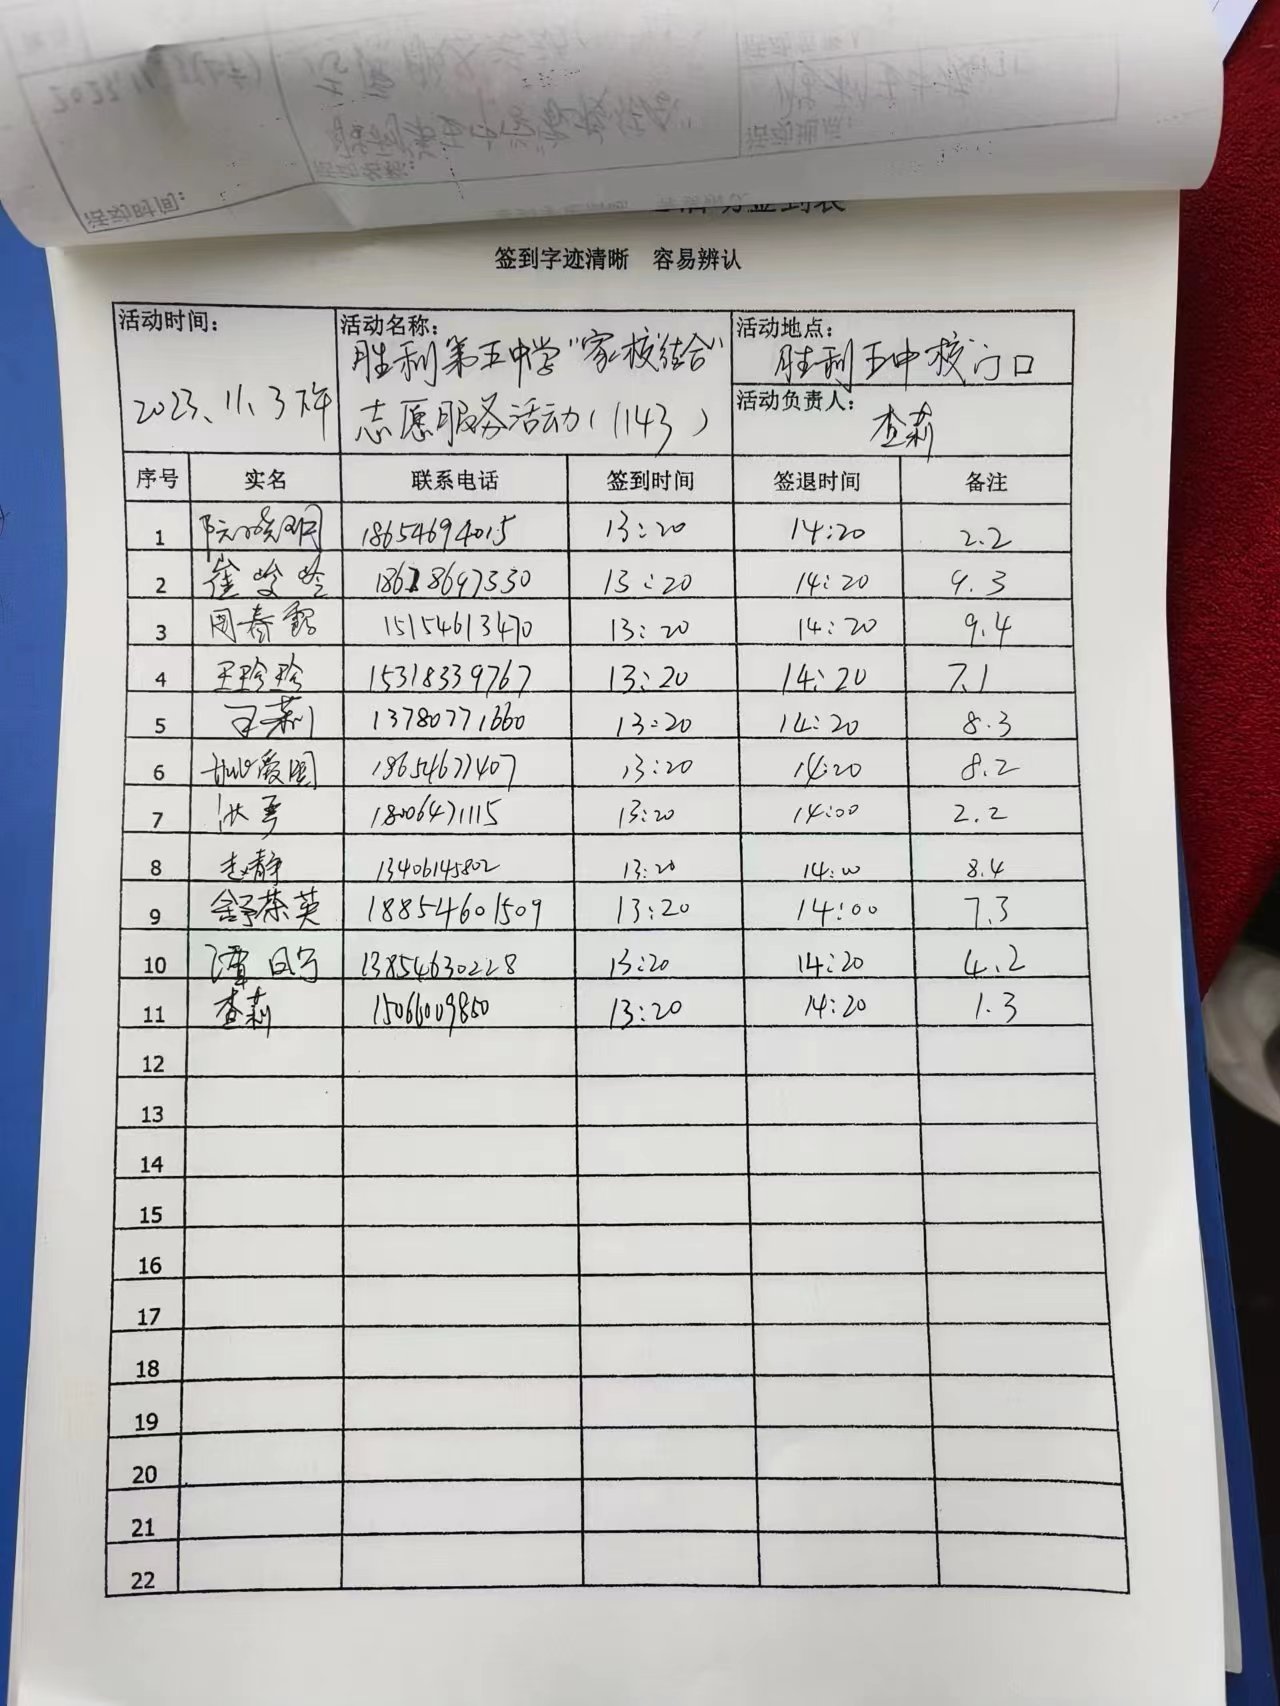 活动签到表
签到字迹清晰 容易辨认
活动时间：
2023、11、3下午
活动名称：
胜利第五中学“家校结合”
志愿服务活动（1143）
活动地点：
胜利五中校门口
活动负责人：
查莉
序号 实名 联系电话 签到时间 签退时间 备注
1 18654694015 13:20 14:20 2.2
2 崔 13:20 14:20 9.3
3 周春霞 15154613470 13:20 14:20 9.4
4 王珍珍 15318339767 13:20 14:20 7.1
5 王莉 13780771660 13:20 14:20 8.3
6 18654677407 13:20 14:20 8.2
7 洪 18006471115 13:20 14:00 2.2
8 赵静 13406145802 13:20 14:00 8.4
9 舒荣英 18854601509 13:20 14:00 7.3
10 13854630228 13:20 14:20 4.2
11 查莉 13:20 14:20 1.3
12
13
14
15
16
17
18
19
20
21
22